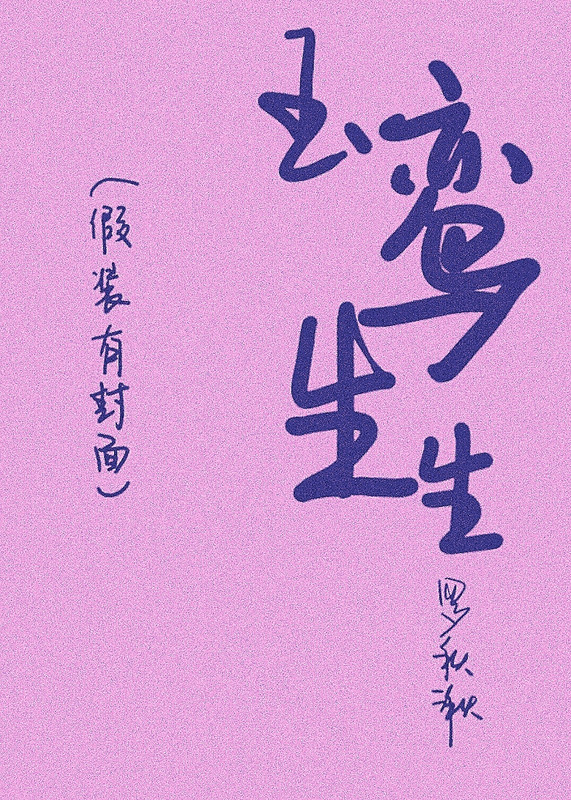 玉鸾生生
罗秋湫
（假装有封面）